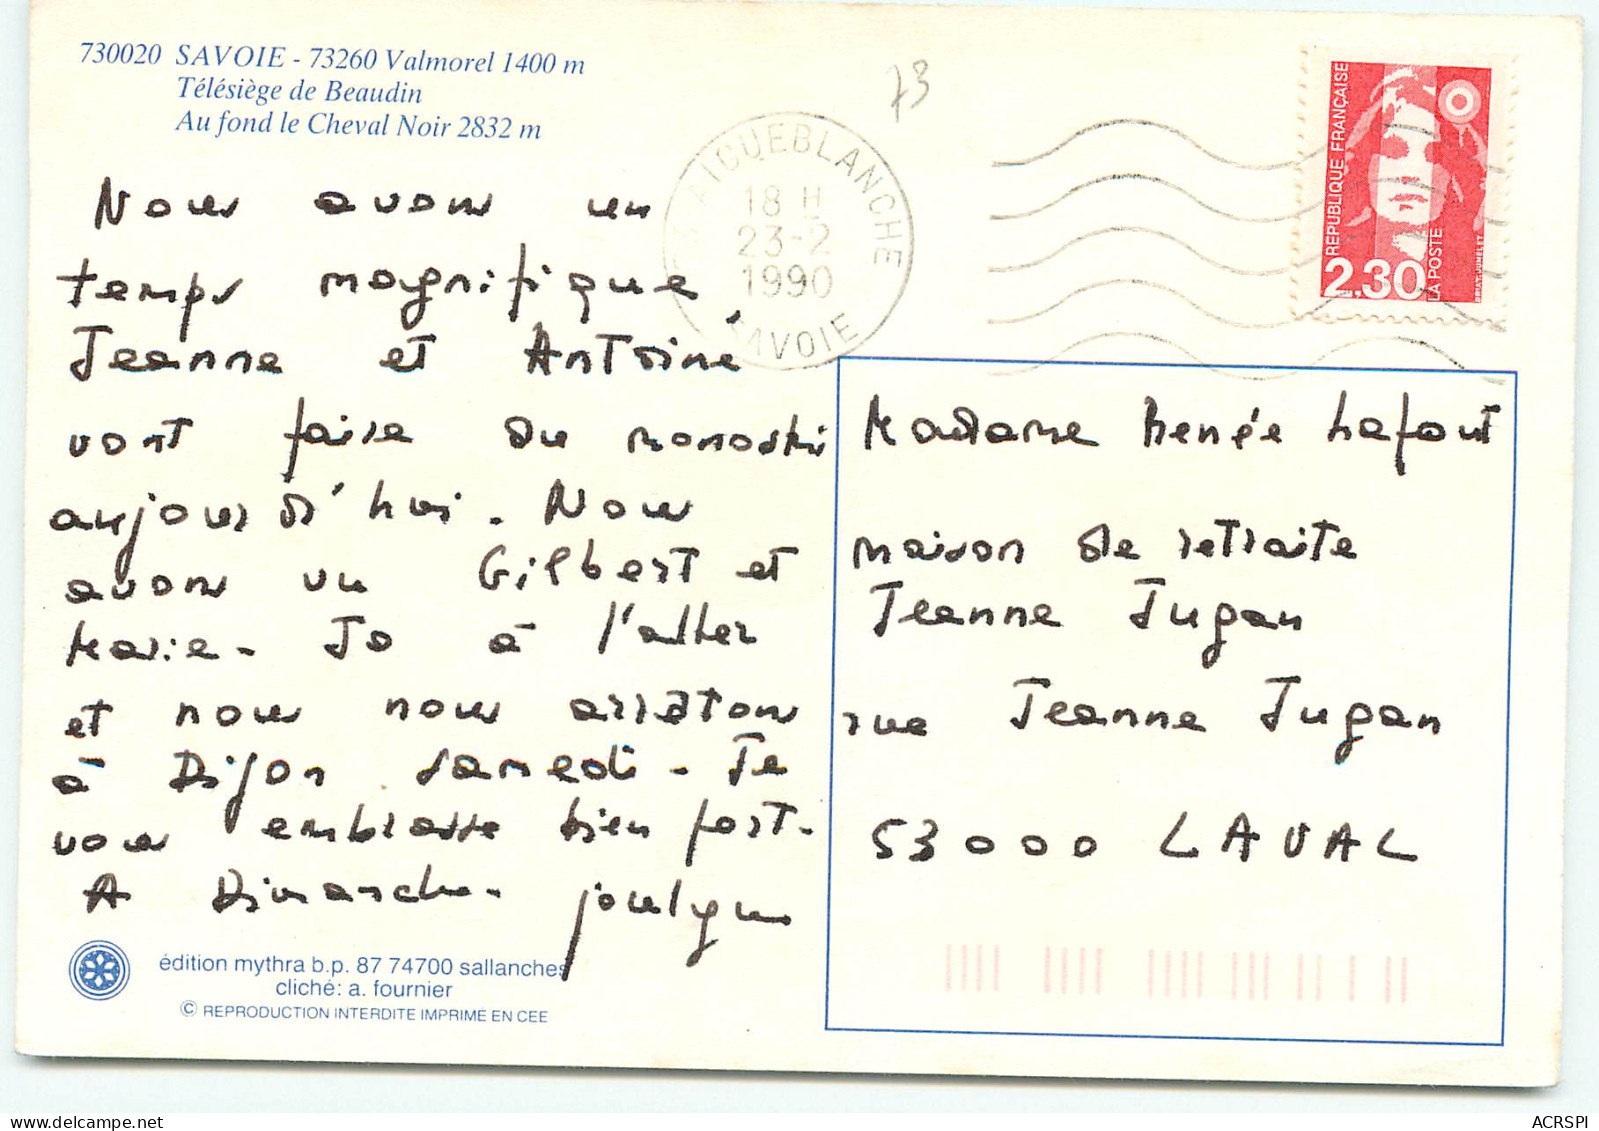 730020 SAVOIE - 73260 Valmorel 1400 m
Télésiège de Beaudin
Au fond le Cheval Noir 2832 m
73
AIGUEBLANCHE
18 H
23-2
1990
SAVOIE
RÉPUBLIQUE FRANÇAISE
2,30
LA POSTE
BRIAT-JUMELET
Nous avons un
temps magnifique
Jeanne et Antoine
vont faire du monoski
aujourd'hui. Nous
avons vu Gilbert et
Marie-Jo à l'aller
et nous nous arrêtons
à Dijon samedi - Je
vous embrasse bien fort.
A Dimanche.
Madame Renée Lafont
maison de retraite
Jeanne Jugan
rue Jeanne Jugan
53000 LAVAL
édition mythra b.p. 87 74700 sallanches
cliché: a. fournier
© REPRODUCTION INTERDITE IMPRIMÉ EN CEE
ACRSPI